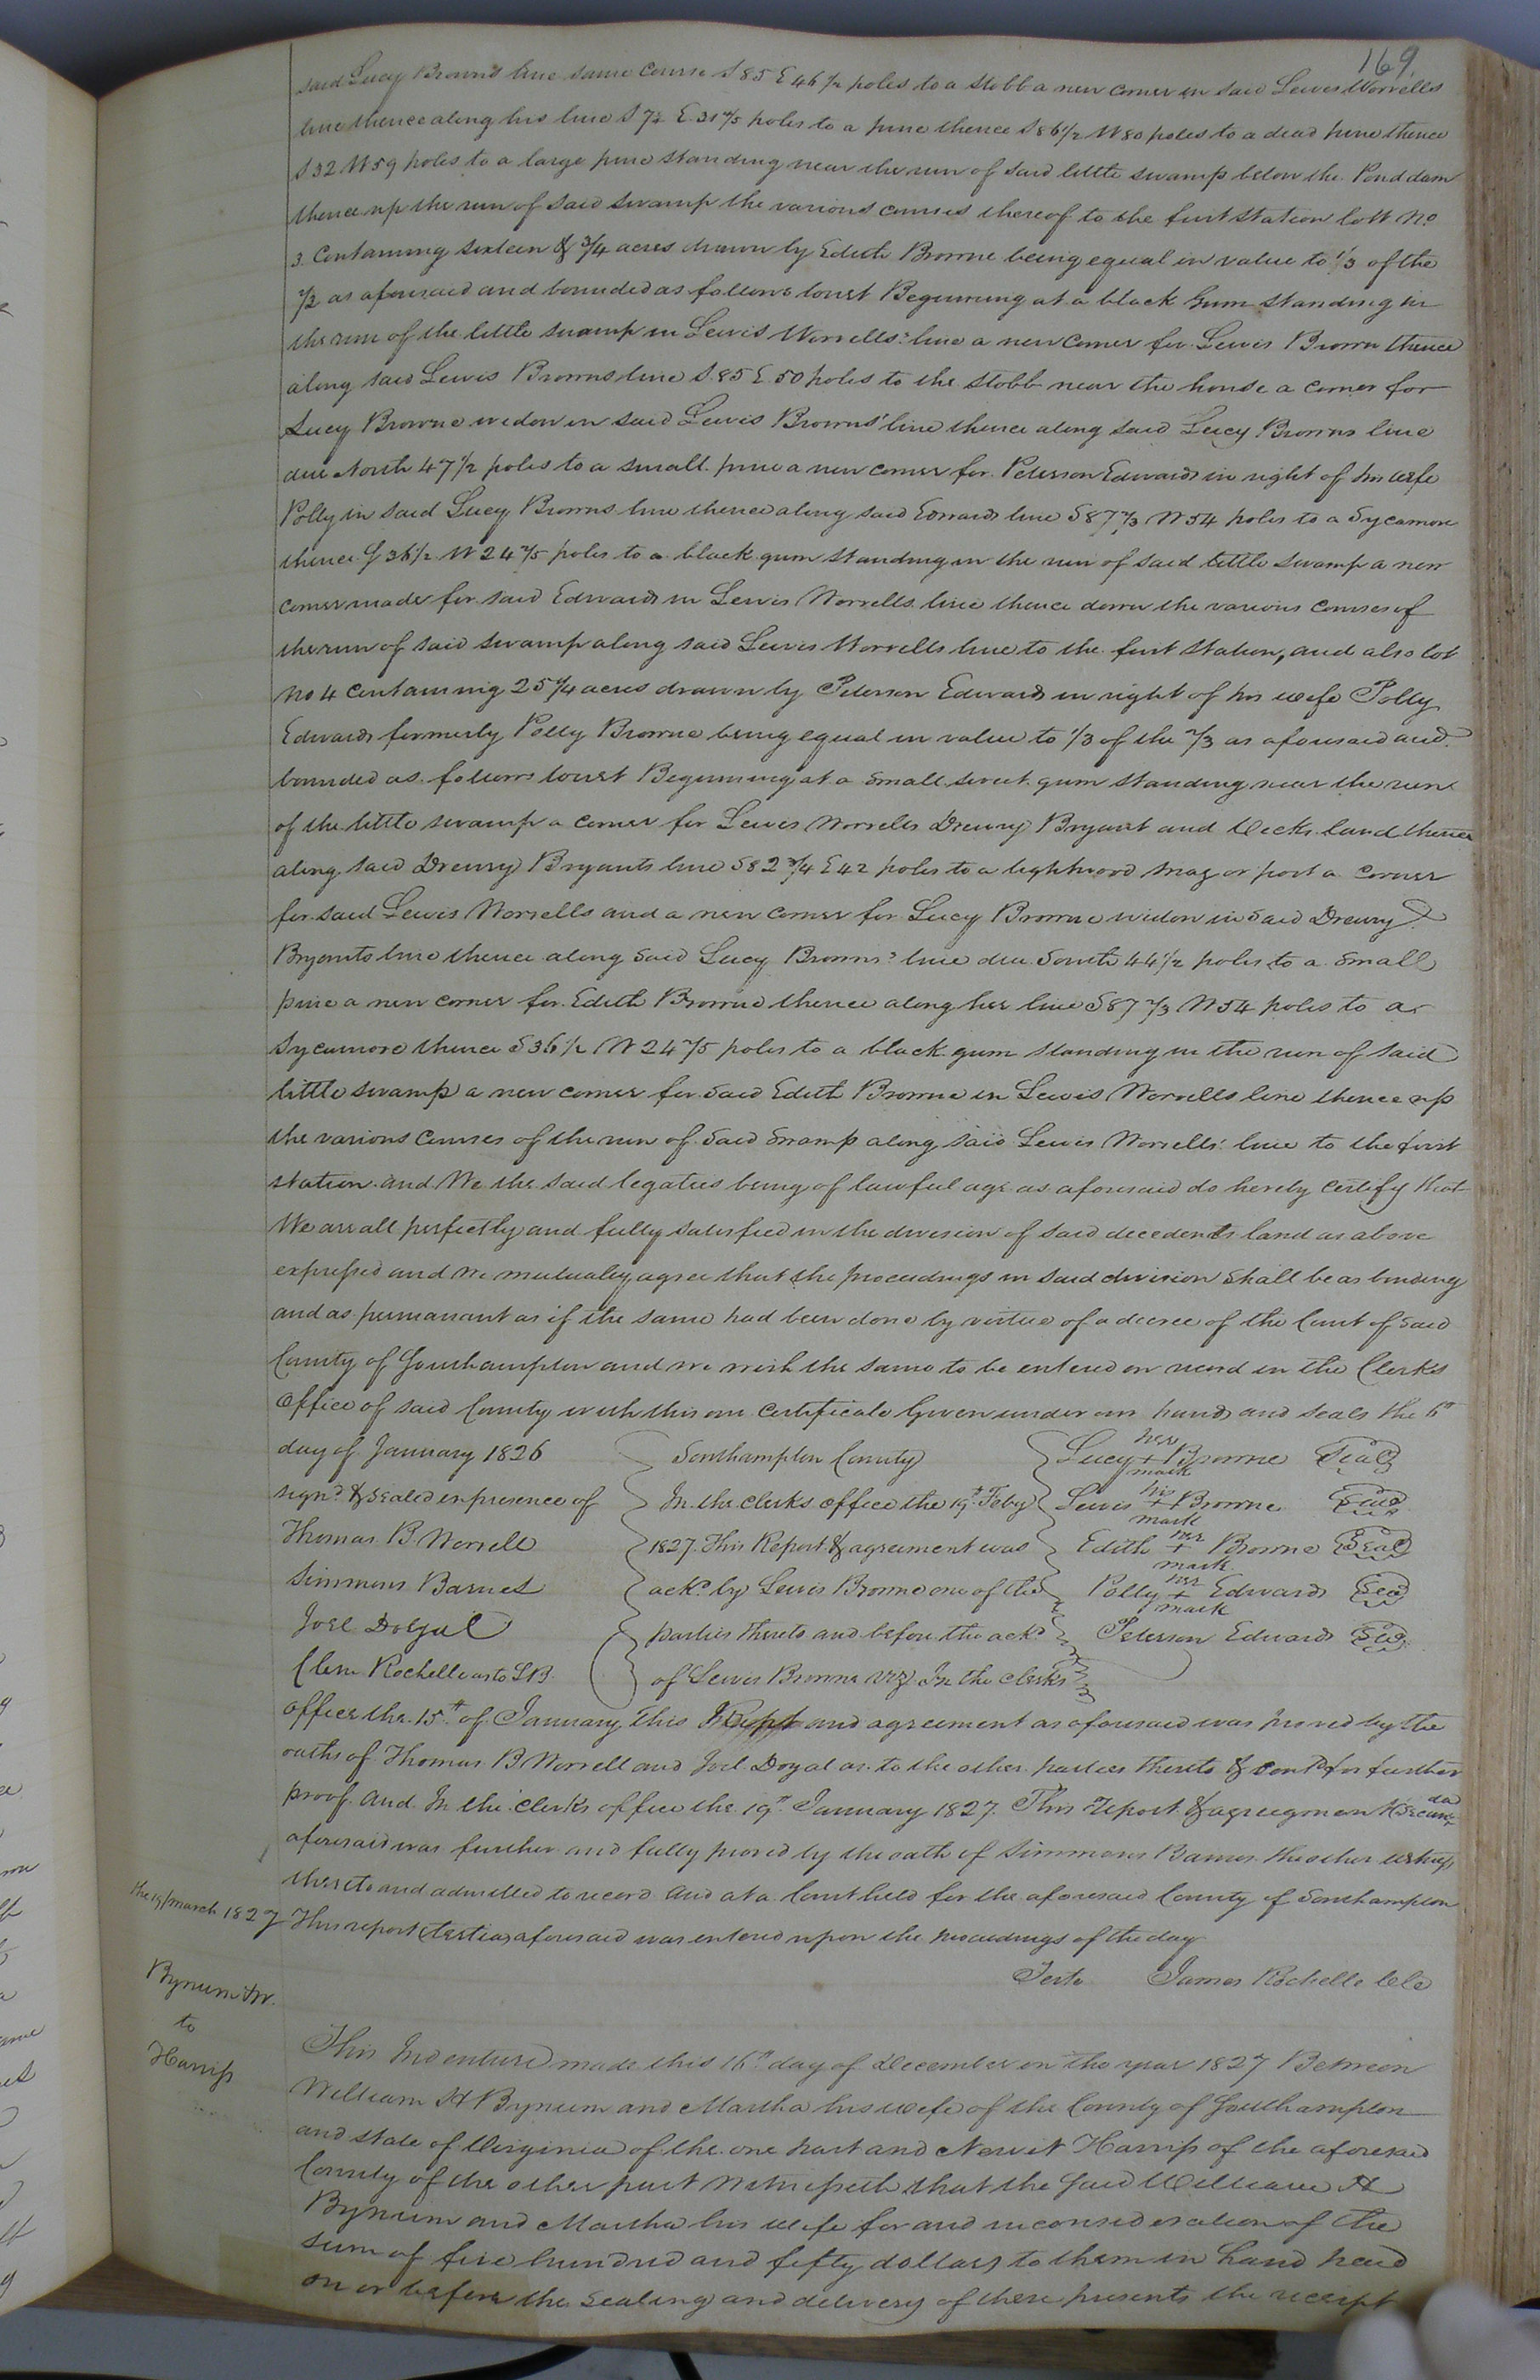 169
said Lucy Browns line same course S 85 E 46 1/2 poles to a stobb a new corner in said Lewis Worrells
line thence along his line S 7 1/2 E 31 2/5 poles to a pine thence S 86 1/2 W 80 poles to a dead pine thence
S 32 W 59 poles to a large pine standing near the run of said little swamp below the Pond dam
thence up the run of said swamp the various courses thereof to the first station lott No
3 Containing sixteen & 3/4 acres drawn by Edith Browne being equal in value to 1/3 of the
2/3 as aforesaid and bounded as follows towit Beginning at a black Gum standing in
the run of the little swamp in Lewis Worrells' line a new corner for Lewis Brown thence
along said Lewis Browns line S. 85 E. 50 poles to the stobb near the house a corner for
Lucy Browne widow in said Lewis Browns' line thence along said Lucy Browns line
due North 47 1/2 poles to a small pine a new corner for Peterson Edwards in right of his wife
Polly in said Lucy Browns line thence along said Edwards line S 87 2/3 W 54 poles to a Sycamore
thence S 36 1/2 W 24 2/5 poles to a black gum standing in the run of said little swamp a new
corner made for said Edwards in Lewis Worrells line thence down the various courses of
the run of said swamp along said Lewis Worrells line to the first station, and also lot
No 4 Containing 25 1/4 acres drawn by Peterson Edwards in right of his wife Polly
Edwards formerly Polly Browne being equal in value to 1/3 of the 2/3 as aforesaid and
bounded as follows towit Beginning at a small sweet gum standing near the run
of the little swamp a corner for Lewis Worrells Drewry Bryant and land thence
along said Drewry Bryants line S 82 3/4 E 42 poles to a lightwood snag or post a corner
for said Lewis Worrells and a new corner for Lucy Browne widow in said Drewry
Bryants line thence along said Lucy Browns' line due South 44 1/2 poles to a small
pine a new corner for Edith Browne thence along her line S 87 2/3 W 54 poles to a
Sycamore thence S 36 1/2 W 24 2/5 poles to a black gum standing in the run of said
little swamp a new corner for said Edith Browne in Lewis Worrells line thence up
the various courses of the run of said swamp along said Lewis Worrells' line to the first
station and We the said legatees being of lawful age as aforesaid do hereby certify that
We are all perfectly and fully satisfied in the division of said decedents land as above
expressed and we mutualy agree that the proceedings in said division shall be as binding
and as permanant as if the same had been done by virtue of a decree of the Court of said
County of Southampton and we wish the same to be entered on record in the Clerks
Office of said County with this our Certificate Given under our hands and seals the 6th
day of January 1826
Signd & sealed in presence of
Thomas B Worrell
Simmons Barnes
Joel Doyal
Clem Rochelle as to LB.
Southampton County
In the clerks office the 19th Feby
1827. This Report & agreement was
ackd by Lewis Browne one of the
parties thereto and before the ackd
of Lewis Browne viz. In the clerks
Lucy her + mark Browne Seal
Lewis his + mark Browne Seal
Edith her + mark Browne Seal
Polly her + mark Edwards Seal
Peterson Edwards Seal
office the 15th of January this and agreement as aforesaid was proved by the
oaths of Thomas B Worrell and Joel Doyal as to the other parties thereto & Contd for further
proof. And In the clerks office the 19th January 1827. This report & agreement
aforesaid was further and fully proved by the oath of Simmons Barnes the other witness
thereto and admitted to record And at a Court held for the aforesaid County of Southampton
the 19 march 1827 This report aforesaid was entered upon the proceedings of the day
Teste James Rochelle
Bynum &c.
to
Harriss
This Indenture made this 16th day of December in the year 1827 Between
William H Bynum and Martha his wife of the County of Southampton
and state of Virginia of the one part and Newit Harriss of the aforesaid
County of the other part Witnesseth that the said William H
Bynum and Martha his wife for and in consideration of the
sum of five hundred and fifty dollars to them in hand paid
on or before the sealing and delivery of these presents the receipt